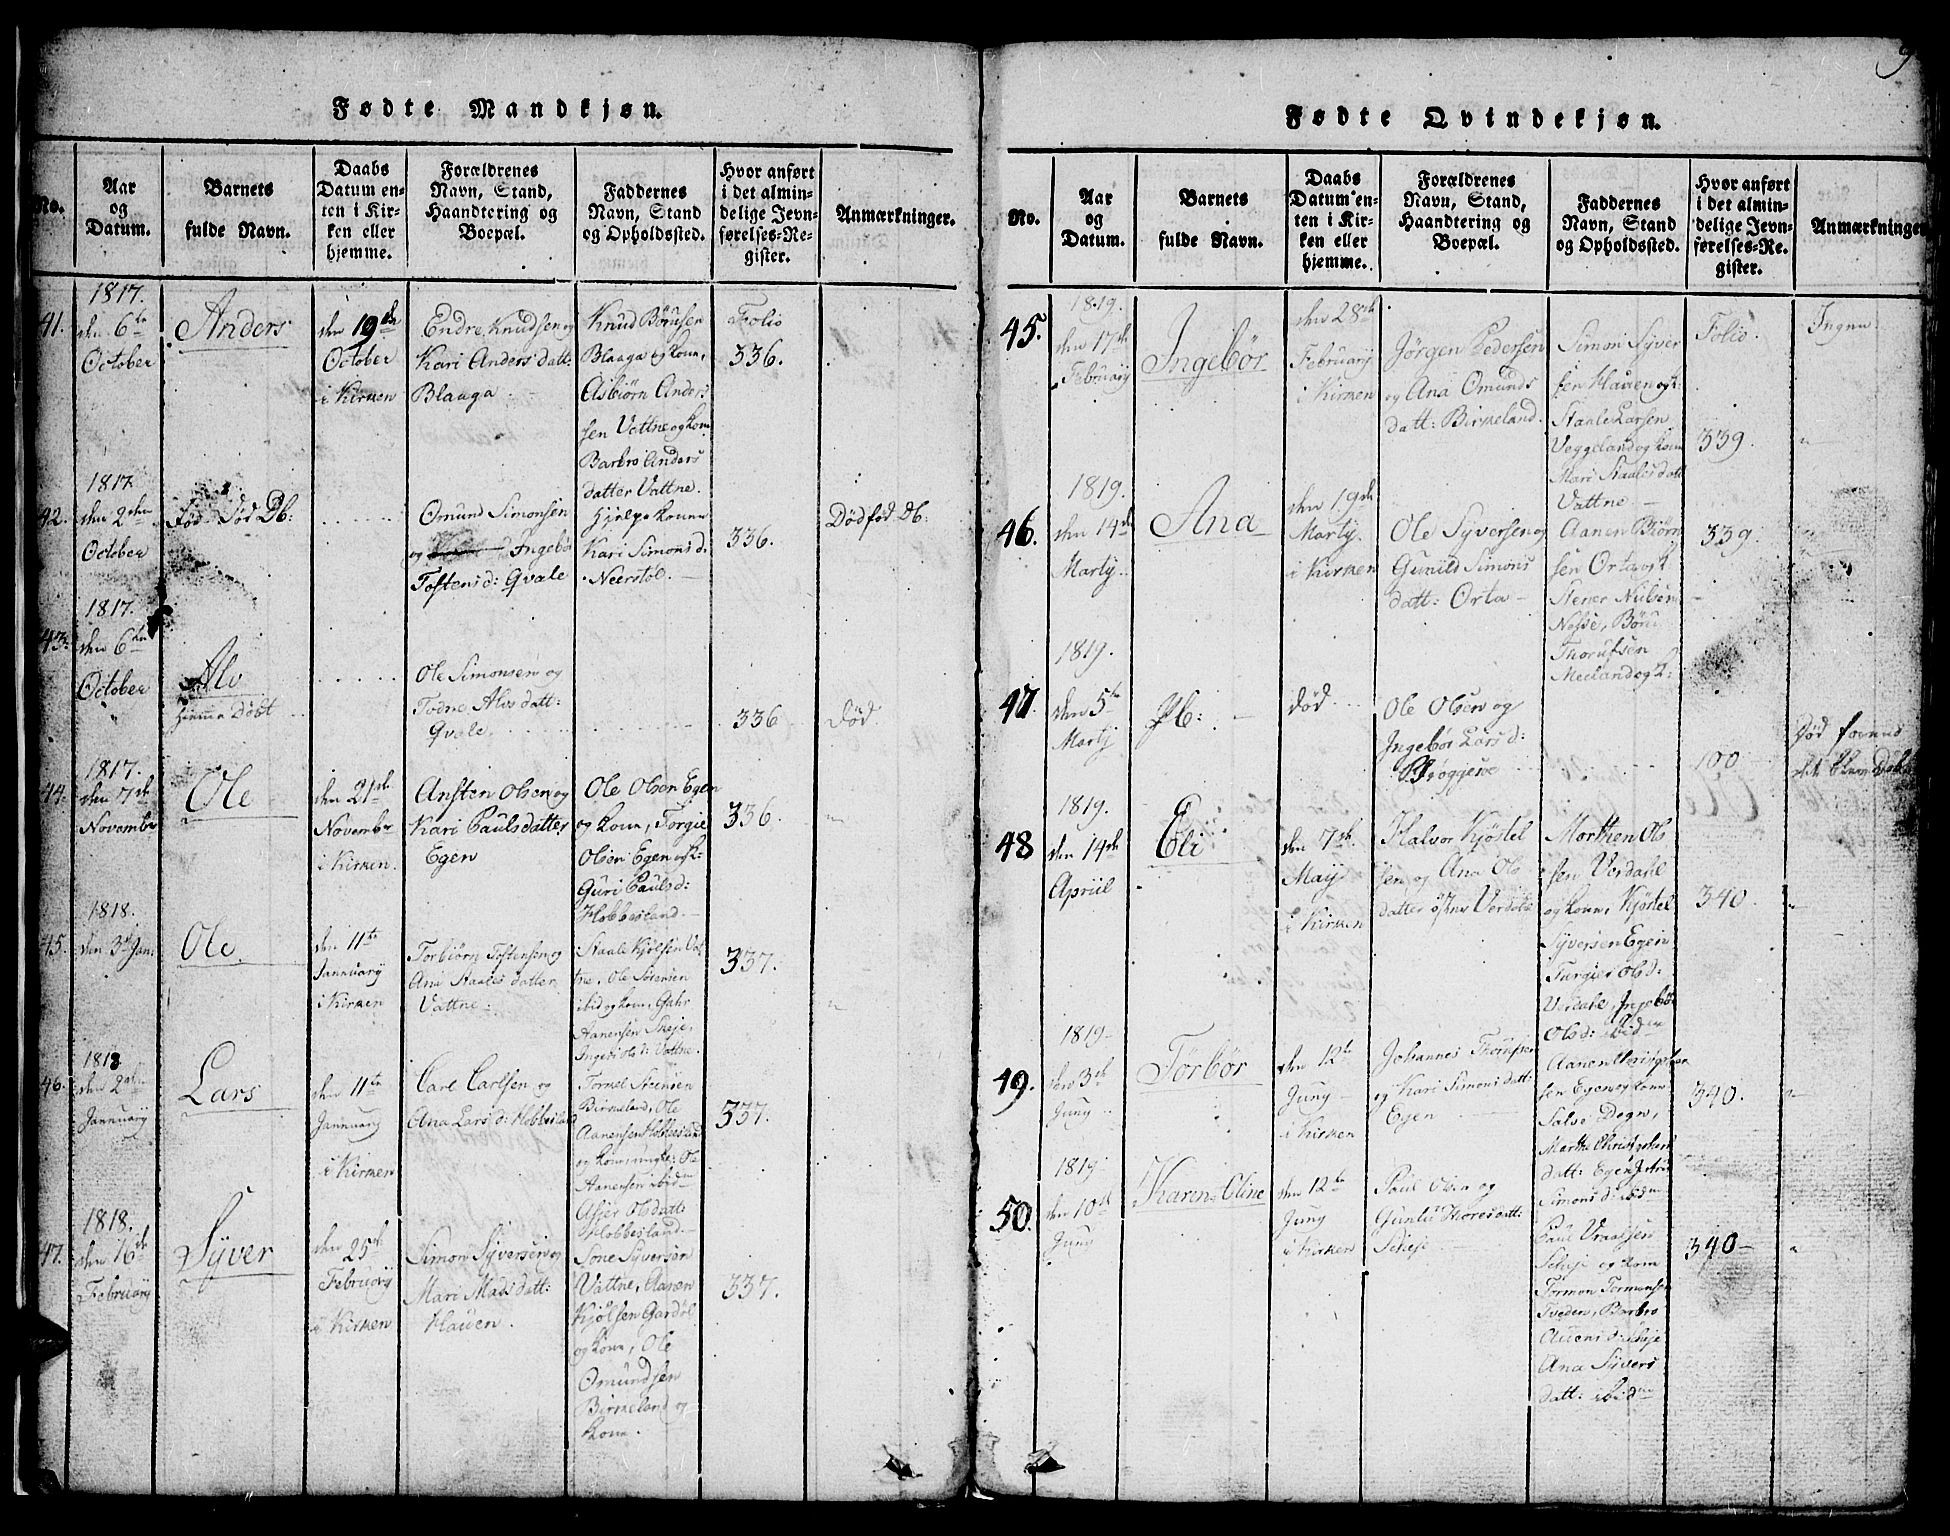 9
Fødte Mandkjøn.
No.
Aar
og
Datum.
Barnets
fulde Navn.
Daabs
Datum en-
ten i Kir-
ken eller
hjemme.
Forældrenes
Navn, Stand,
Haandtering og
Boepæl.
Faddernes
Navn, Stand
og Opholdssted.
Hvor anført
i det almin-
delige Jevn-
førelses-Re-
gister.
Anmærkninger.
41.
1817.
den 6te
October
Anders
den 19de
October
i Kirken
Endre Knudsen og
Kari Anders datt:
Blaaga
Knud Børusen
Blaaga og kone,
Asbiørn Anders
sen Vattne og kone
Barbro Anders
datter Vattne.
Folio
336.
42.
1817.
den 2den
October
Fød Død Db:
Omund Simonsen
og Ingebør
Tostens d: Qvale
Hjelpe kone
Kari Simons d:
Neerstøl.
336.
Dødfød Db:
43.
1817.
den 6te
October
Alv
Hiemme Døbt
Ole Simonsen og
Todne Alvs datt:
Qvale
336
død.
44.
1817.
den 7de
November
Ole
den 21de
November
i Kirken.
Ansten Olsen og
Kari Pauls datter
Egen
Ole Olsen Egen
og kone, Torgie
Olsen Egen og k:
Guri Pauls d:
Hobbesland.
336.
45.
1818.
den 3de Jan:
Ole.
den 11te
Jannuary
i Kirken
Torbiørn Tostensen og
Ana Staales datter
Vattne
Staale Kjølsen Vat
tne, Ole Sørensen
ibid og kone, Gahr
Aanensen Skeje,
Inger Ols d: Vattne.
337.
46.
1818
den 2den
Jannuary
Lars
den 11te
Jannuary
i Kirken
Carl Carlsen og
Ana Lars d: Hobbesland
Tormel Steensen
Birkeland, Ole
Aanensen Hobbesland
og kone, ungke: Ole
Aanensen ibidm
Asser Ols datt:
Hobbesland
337.
47.
1818.
den 16de
February
Syver
den 25de
February
i Kirken
Simon Syversen og
Mari Mads datt:
Hauen.
Sone Syversen
Vattne, Aanen
Kjølsen Gardøl
og kone, Ole
Omundsen
Birkeland og
kone.
337.
Fødte Qvindekjøn.
No.
Aar
og
Datum.
Barnets
fulde Navn.
Daabs
Datum en-
ten i Kir-
ken eller
hjemme.
Forældrenes
Navn, Stand,
Haandtering og
Boepæl.
Faddernes
Navn, Stand
og Opholdssted.
Hvor anført
i det almin-
delige Jevn-
førelses-Re-
gister.
Anmærkninger
45.
1819.
den 17de
February
Ingebør
den 28de
February
i Kirken
Jørgen Pedersen
og Ana Omunds
datt: Birkeland.
Simon Syver
sen Hauen og k:
Staale Larsen
Veggeland og kone
Mari Staales datt
Vattne
Folio.
339.
Ingen
46.
1819.
den 14de
Marty
Ana
den 19de
Marty
i Kirken
Ole Syversen og
Gunild Simons
datt: Orta
Aanen Biørn
sen Orta og k
Stener Nielsen
Nesse, Børu
Thorufsen
Meeland og k:
339.
47.
1819.
den 5te
Marty
Pb:
død
Ole Olsen og
Ingebør Lars d:
100
48
1819.
den 14de
Apriil
Eli
den 7de
May
i Kirken
Halvor Kjøstel
sen og Ana Ols
datter
Morthen Ols
sen Verdahl
og kone, Kjøstel
Syversen Egen
Turgier Ols d:
Verdahl, Ingebør
Ols d: ibidm
340.
49.
1819
den 3de
Juny
Torbør
den 12te
Juny
i Kirken
Johannes Thorufsen
og Kari Simons datt:
Egen
sen Egen og kone
Salve Degn,
datt: Egen
Simons d: ibidm
340.
50.
1819
den 10de
Juny
Karen Oline
den 12te
Juny
i Kirken
Paul Olsen og
Gunlu Thores datt:
Skeje
Paul Vraalsen
Skeje og kone
Tormon Tormonsen
Sveden, Barbro
Auens d: Skeje
Ana Syvers
datt: ibidm
340